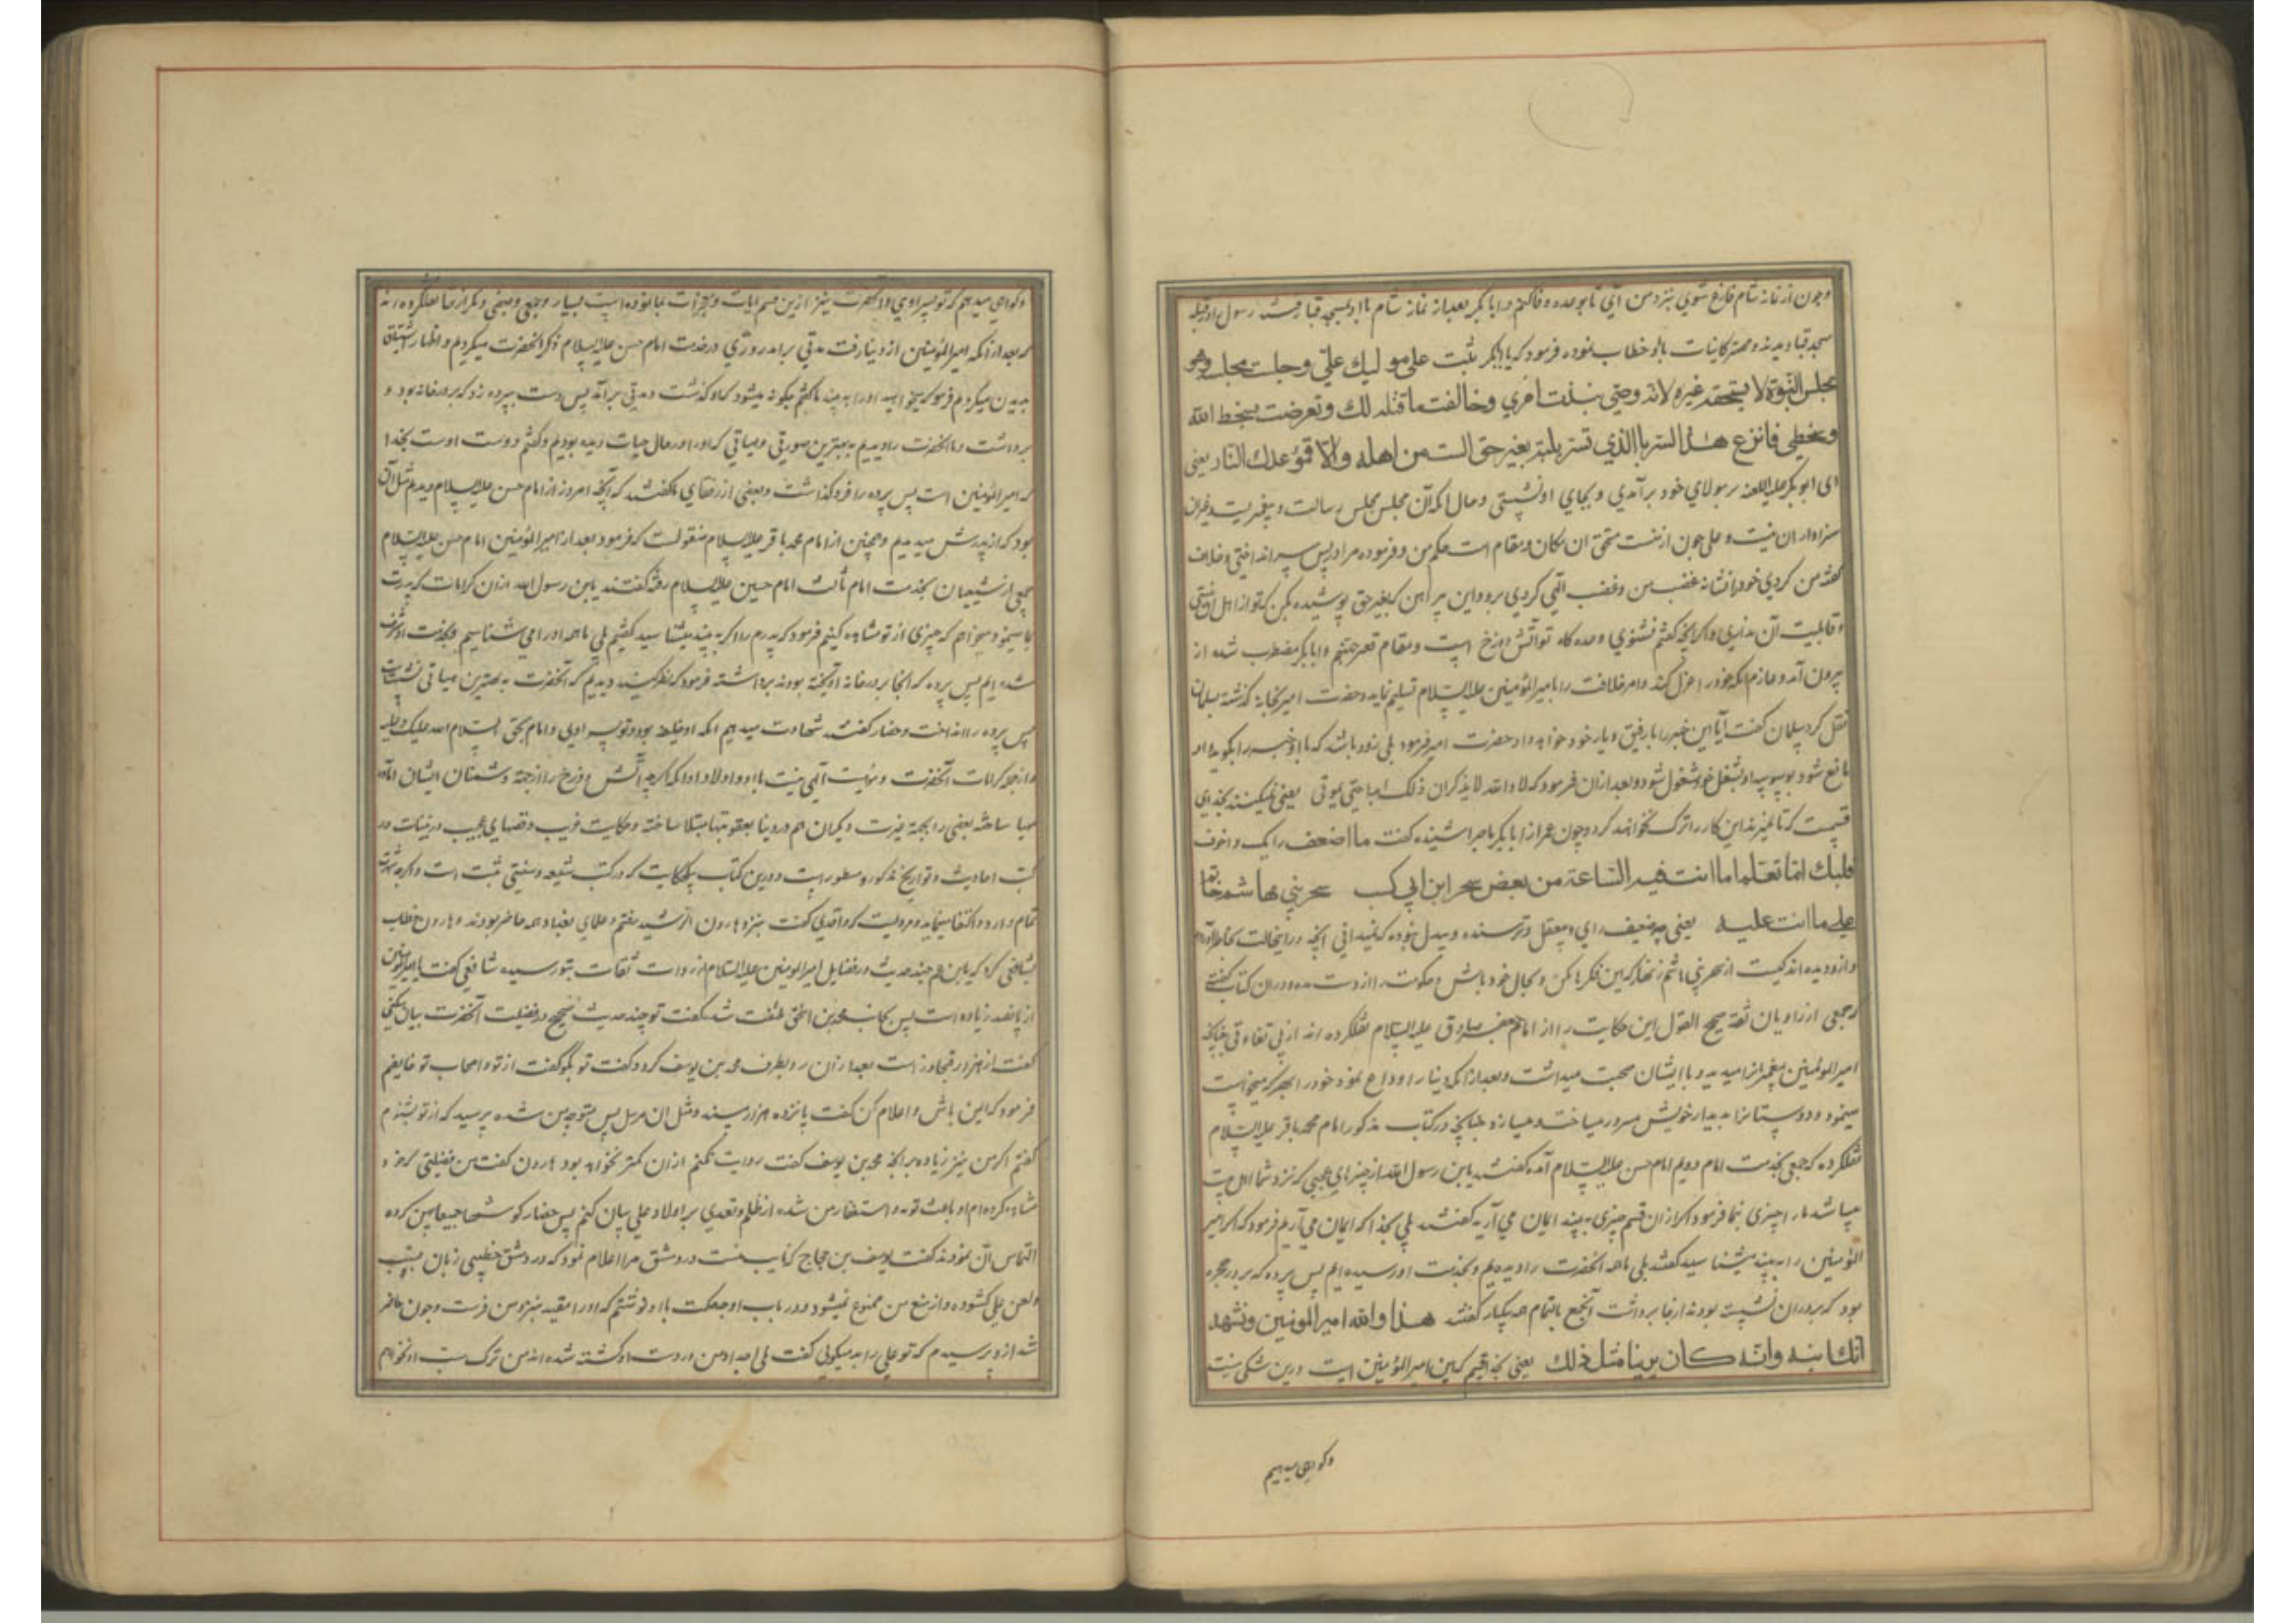 وچون از نماز شام فارغ شوی بنزد من آی تا بوعده وفا کنم و ابابکر بعد از نماز شام با او بمسجد قبا رفتند رسول را در قبله
مسجد قبا دیدند و مهتر کاینات با او خطاب نمود و فرمود که یا ابابکر تثبت علی مولیك علیّ وجلست مجلسه وهو
مجلس النبوّة لا یستحقه غیره لانه وصیّی نبذت امری وخالفت ما قلته لك وتعرضت لسخط الله
وسخطی فانزع هذا السربال الذی تسربلته بغیر حق الست من اهله والّا فموعدك النّار یعنی
ای ابوبکر بمولای خود برآمدی و بجای او نشستی و حال آنکه آن مجلس مجلس رسالت و پیغمبریست و غیر آن
سزاوار آن نیست و علی چون از منست مستحق آن مکان و مقام است حکم من و فرموده مرا در پس سر انداختی و خلاف
گفته من کردی خود را نشانه غضب من و غضب الهی کردی برو و این پیراهن که بغیر حق پوشیده بکن که تو از اهل آن نیستی
و قابلیت آن نداری و اگر آنچه گفتم نشنوی وعده گاه تو آتش دوزخ است و مقام قعر جهنم و ابابکر مضطرب شده از
بیرون آمد و عازم آنکه خود را عزل کند و امر خلافت را بامیر المؤمنین علیه السلام تسلیم نماید و حضرت امیر بخانه گذشته بسلمان
نقل کرد سلمان گفت آیا این خبر را با رفیق و یار خود خواهد داد حضرت امیر فرمود بلی زود باشد که با او خبر را بگوید و او
مانع شود و بشغل خود مشغول شود و بعد از آن فرمود که لا والله لا یذکران ذلک ابدا حتی یموتا یعنی نمیکنند بخدای
قسمت که تا بمیرند این کار را ترک نخواهند کرد و چون عمر از ابابکر ماجرا شنیده گفت ما اضعف رایک و اخوف
قلبك اما تعلم اما انت فیه الساعة من بعض سحر ابن ابی کب سحر بنی هاشم
علی ما انت علیه یعنی چه ضعیف رای و بیعقل و ترسنده و بیدل بوده که نمیدانی آنچه در اینحالت بخاطر آورده
و از و دیده اند کیست از سحر بنی هاشم زنهار که این فکرها مکن و بحال خود باش و حکومت را از دست مده و در آن کتاب گفته
جمعی از راویان ثقه صحیح القول این حکایت را از امام جعفر صادق علیه السلام نقلکرده اند از پی تفاوتی چنانچه
امیر المؤمنین پیغمبر را میدید و با ایشان صحبت میداشت و بعد از آنکه دنیا را وداع نمود خود را بهر که میخواست
مینمود و دوستانرا بدیدار خویش مسرور میساخت و میسازد چنانچه در کتاب مذکور امام محمد باقر علیه السلام
نقلکرده که جمعی بخدمت امام دویم امام حسن علیه السلام آمده گفتند یابن رسول الله از چیزهای عجیبی که نزد شما اهل بیت
میباشد ما را چیزی بنما فرمود اگر از آن قسم چیزی به بینید ایمان می آرید گفتند بلی بخدا که ایمان می آریم فرمود که اگر امیر
المؤمنین را به بینید میشناسید گفتند بلی ما همه آنحضرت را دیده ایم و بخدمت او رسیده ایم پس پرده که بر در حجره
بود که بر در آن نشسته بودند از جا برداشت آنجمع بالتمام همه بیکبار گفتند هذا والله امیر المؤمنین ونشهد
انّك ابنه وانّه كان یرینا مثل ذلك یعنی بخدا قسم که این امیر المؤمنین است درین شکی نیست
وگواهی میدهیم
وگواهی میدهیم که تو پسر اویی و آنحضرت نیز ازین قسم آیات و معجزات بما نموده است بسیار و جمعی دیگر از نقل کرده اند
که بعد از آنکه امیر المؤمنین از دنیا رفت مدتی برآمد روزی در خدمت امام حسن علیه السلام ذکر آنحضرت میکردیم و اظهار اشتیاق
بدیدن میکردیم فرمود که میخواهید او را به بینید ما گفتیم چگونه میشود که او گذشت و مدتی برآمد پس دست بپرده زد که بر در خانه بود و
برداشت و ما آنحضرت را دیدیم به بهترین صورتی و هیأتی که او را در حال حیات دیده بودیم و گفتم دوست اوست بخدا
که امیر المؤمنین است پس پرده را فرو گذاشت و بعضی از رفقای ما گفتند که آنچه امروز از امام حسن علیه السلام دیدیم مثل آن
بود که از پدرش میدیدیم و همچنین از امام محمد باقر علیه السلام منقولست که فرمود بعد از امیر المؤمنین امام حسن علیه السلام
جمعی از شیعیان بخدمت امام ثالث امام حسین علیه السلام رفته گفتند یابن رسول الله از آن کرامات که پدرت
بما مینمود میخواهیم که چیزی از تو مشاهده کنیم فرمود که پدرم را اگر به بینید میشناسید گفتیم بلی ما همه او را می شناسیم و بخدمت او مشرف
شده ایم پس پرده که آنجا بر در خانه آویخته بودند برداشته فرمود که نظر کنید دیدیم که آنحضرت به بهترین هیأتی نشسته است
پس پرده را انداخت و حضار گفتند شهادت میدهیم آنکه او خلیفه بود و تو پسر اویی و امام بحقی السلام
و از جمله کرامات آنحضرت و الهی نیست با او و اولاد او آنکه اگرچه آتش دوزخ را از جهة دشمنان ایشان آماده
مهیا ساخته بعضی را بجهة عبرت دیگران هم در دنیا بعقوبتها مبتلا ساخته و حکایت غریب و قصهای عجیب درینباب در
کتب احادیث و تواریخ مذکور و مسطور است و درین کتاب بیک حکایت که در کتب شیعه و سنی ثبت است و اگرچه شهرت
تمام دارد اکتفا مینماید مرویست که واقدی گفت بنزد هارون الرشید رفتم و علمای بغداد همه حاضر بودند و هارون خطاب
بشافعی کرد که یابن عم چند حدیث در فضایل امیر المومنین علیه السلام از روات ثقات بتو رسیده شافعی گفت یا امیر المومنین
از پانصد زیاده است پس بجانب محمد بن اسحق ملتفت شده گفت تو چند حدیث صحیح در فضیلت آنحضرت بیان میکنی
گفت از هزار متجاوز است بعد از آن رو بطرف محمد بن یوسف کرد و گفت تو بگو گفت از تو و اصحاب تو خایفم
فرمود که ایمن باش و اعلام کن گفت پانزده هزار مسند و مثل آن مرسل پس متوجه من شده پرسید که از تو بشنوم
گفتم اگر من نیز زیاده بر آنچه محمد بن یوسف گفت روایت نکنم از آن کمتر نخواهد بود هارون گفت من فضیلتی که خود
مشاهده کرده ام و باعث توبه و استغفار من شده از ظلم و تعدی بر اولاد علی بیان کنم پس حضار گوشها بجانب من کرده
التماس آن نمودند گفت یوسف بن حجاج که نایب منست در دمشق مرا اعلام نمود که در دمشق خطیبی زبان بسب
و لعن علی گشوده و از منع من ممنوع نمیشود و در باب او چه حکمست با او نوشتم که او را مقید بنزد من فرست و چون حاضر
شد از و پرسیدم که تو علی را بد میگویی گفت بلی اجداد من بر دست او کشته شده اند من ترک سب او نخواهم